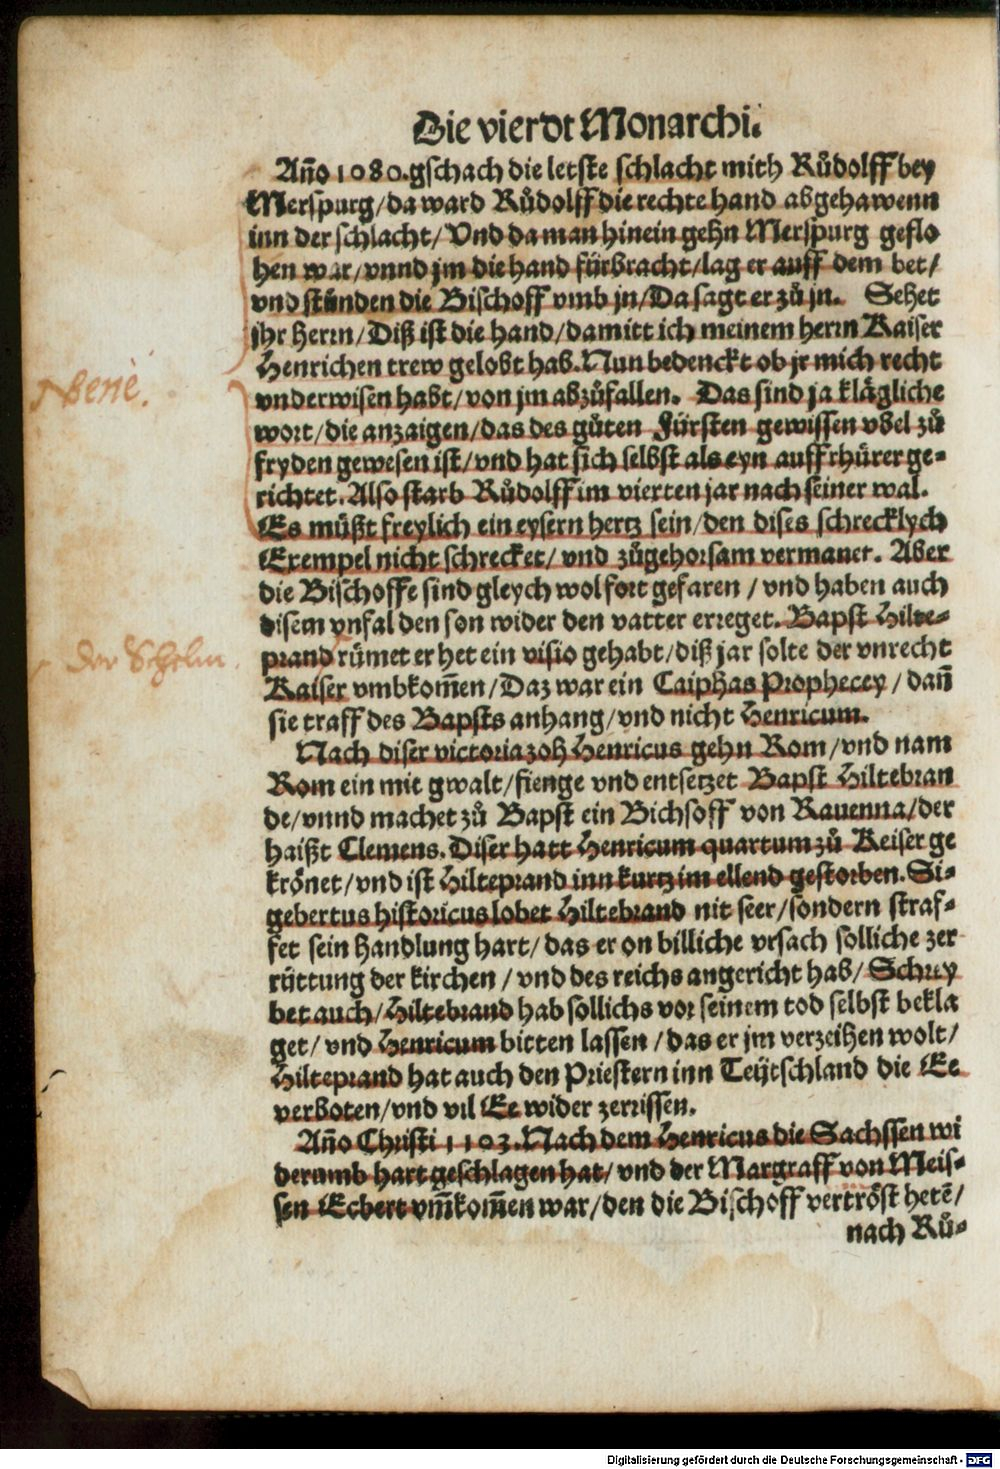 Die vierdt Monarchi.
Añо 1080. gschach die letste schlacht mith Růdolff bey
Merspurg/da ward Růdolff die rechte hand abgehawenn
inn der schlacht/ Vnd da man hinein gehn Merspurg geflo
hen war/vnnd jm die hand fürbracht/lag er auff dem bet/
vnd stůnden die Bischoff vmb jn/Da sagt er zů jn. Sehet
jhr Herrn/Diß ist die hand/damitt ich meinem herrn Kaiser
Henrichen trew gelobt hab. Nun bedenckt ob jr mich recht
vnderwisen habt/von jm abzůfallen. Das sind ja klägliche
wort/die anzaigen/das des gůten Fürsten gewissen vbel zů
fryden gewesen ist/vnd hat sich selbst als eyn auffrhürer ge-
richtet. Also starb Růdolff im vierten jar nach seiner wal.
Es müßt freylich ein eysern hertz sein/den dises schrecklych
Exempel nicht schrecket/ vnd zůgehorsam vermanet. Aber
die Bischoffe sind gleych wol fort gefaren / vnd haben auch
disem vnfal den son wider den vatter erreget. Bapst Hilte-
prand rümet er het ein visio gehabt/diß jar solte der vnrecht
Kaiser vmbkom̃en/Daz war ein Caiphas Prophecey / dañ
sie traff des Bapsts anhang/vnd nicht Henricum.
Nach diser victoria zoh Henricus gehn Rom/vnd nam
Rom ein mit gwalt/fienge vnd entsetzet Bapst Hiltebran
de/vnnd machet zů Bapst ein Bichsoff von Rauenna/der
haißt Clemens. Diser hatt Henricum quartum zů Keiser ge
krönet/vnd ist Hilteprand inn kurtz im ellend gestorben. Si-
gebertus historicus lobet Hiltebrand nit seer/sondern straf-
fet sein handlung hart/das er on billiche vrsach solliche zer
rüttung der kirchen / vnd des reichs angericht hab/ Schrey
bet auch/Hiltebrand hab sollichs vor seinem tod selbst bekla
get/ vnd Henricum bitten lassen /das er jm verzeihen wolt/
Hilteprand hat auch den Priestern inn Teütschland die Ee
verboten/vnd vil Ee wider zerrissen.
Año Christi 1103. Nach dem Henricus die Sachssen wi
derumb hart geschlagen hat/ vnd der Margraff von Meis-
sen Ecbert vm̃kom̃en war/den die Bischoff vertröst hetẽ/
nach Rů-
Nbenè.
der Schelm.
Digitalisierung gefördert durch die Deutsche Forschungsgemeinschaft - DFG